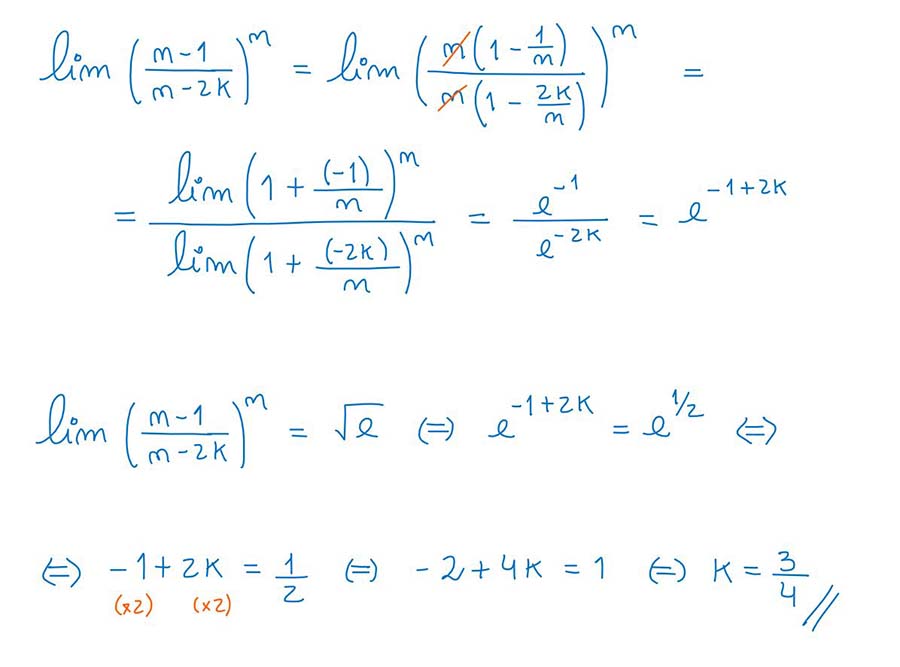 lim ((n-1)/(n-2k))^n = lim ((n(1-1/n))/(n(1-2k/n)))^n =
= (lim (1+(-1)/n)^n)/(lim (1+(-2k)/n)^n) = e^-1/e^-2k = e^-1+2k
lim ((n-1)/(n-2k))^n = √e ⇔ e^-1+2k = e^1/2 ⇔
⇔ -1+2k = 1/2 ⇔ -2+4k = 1 ⇔ k = 3/4 //
(×2) (×2)